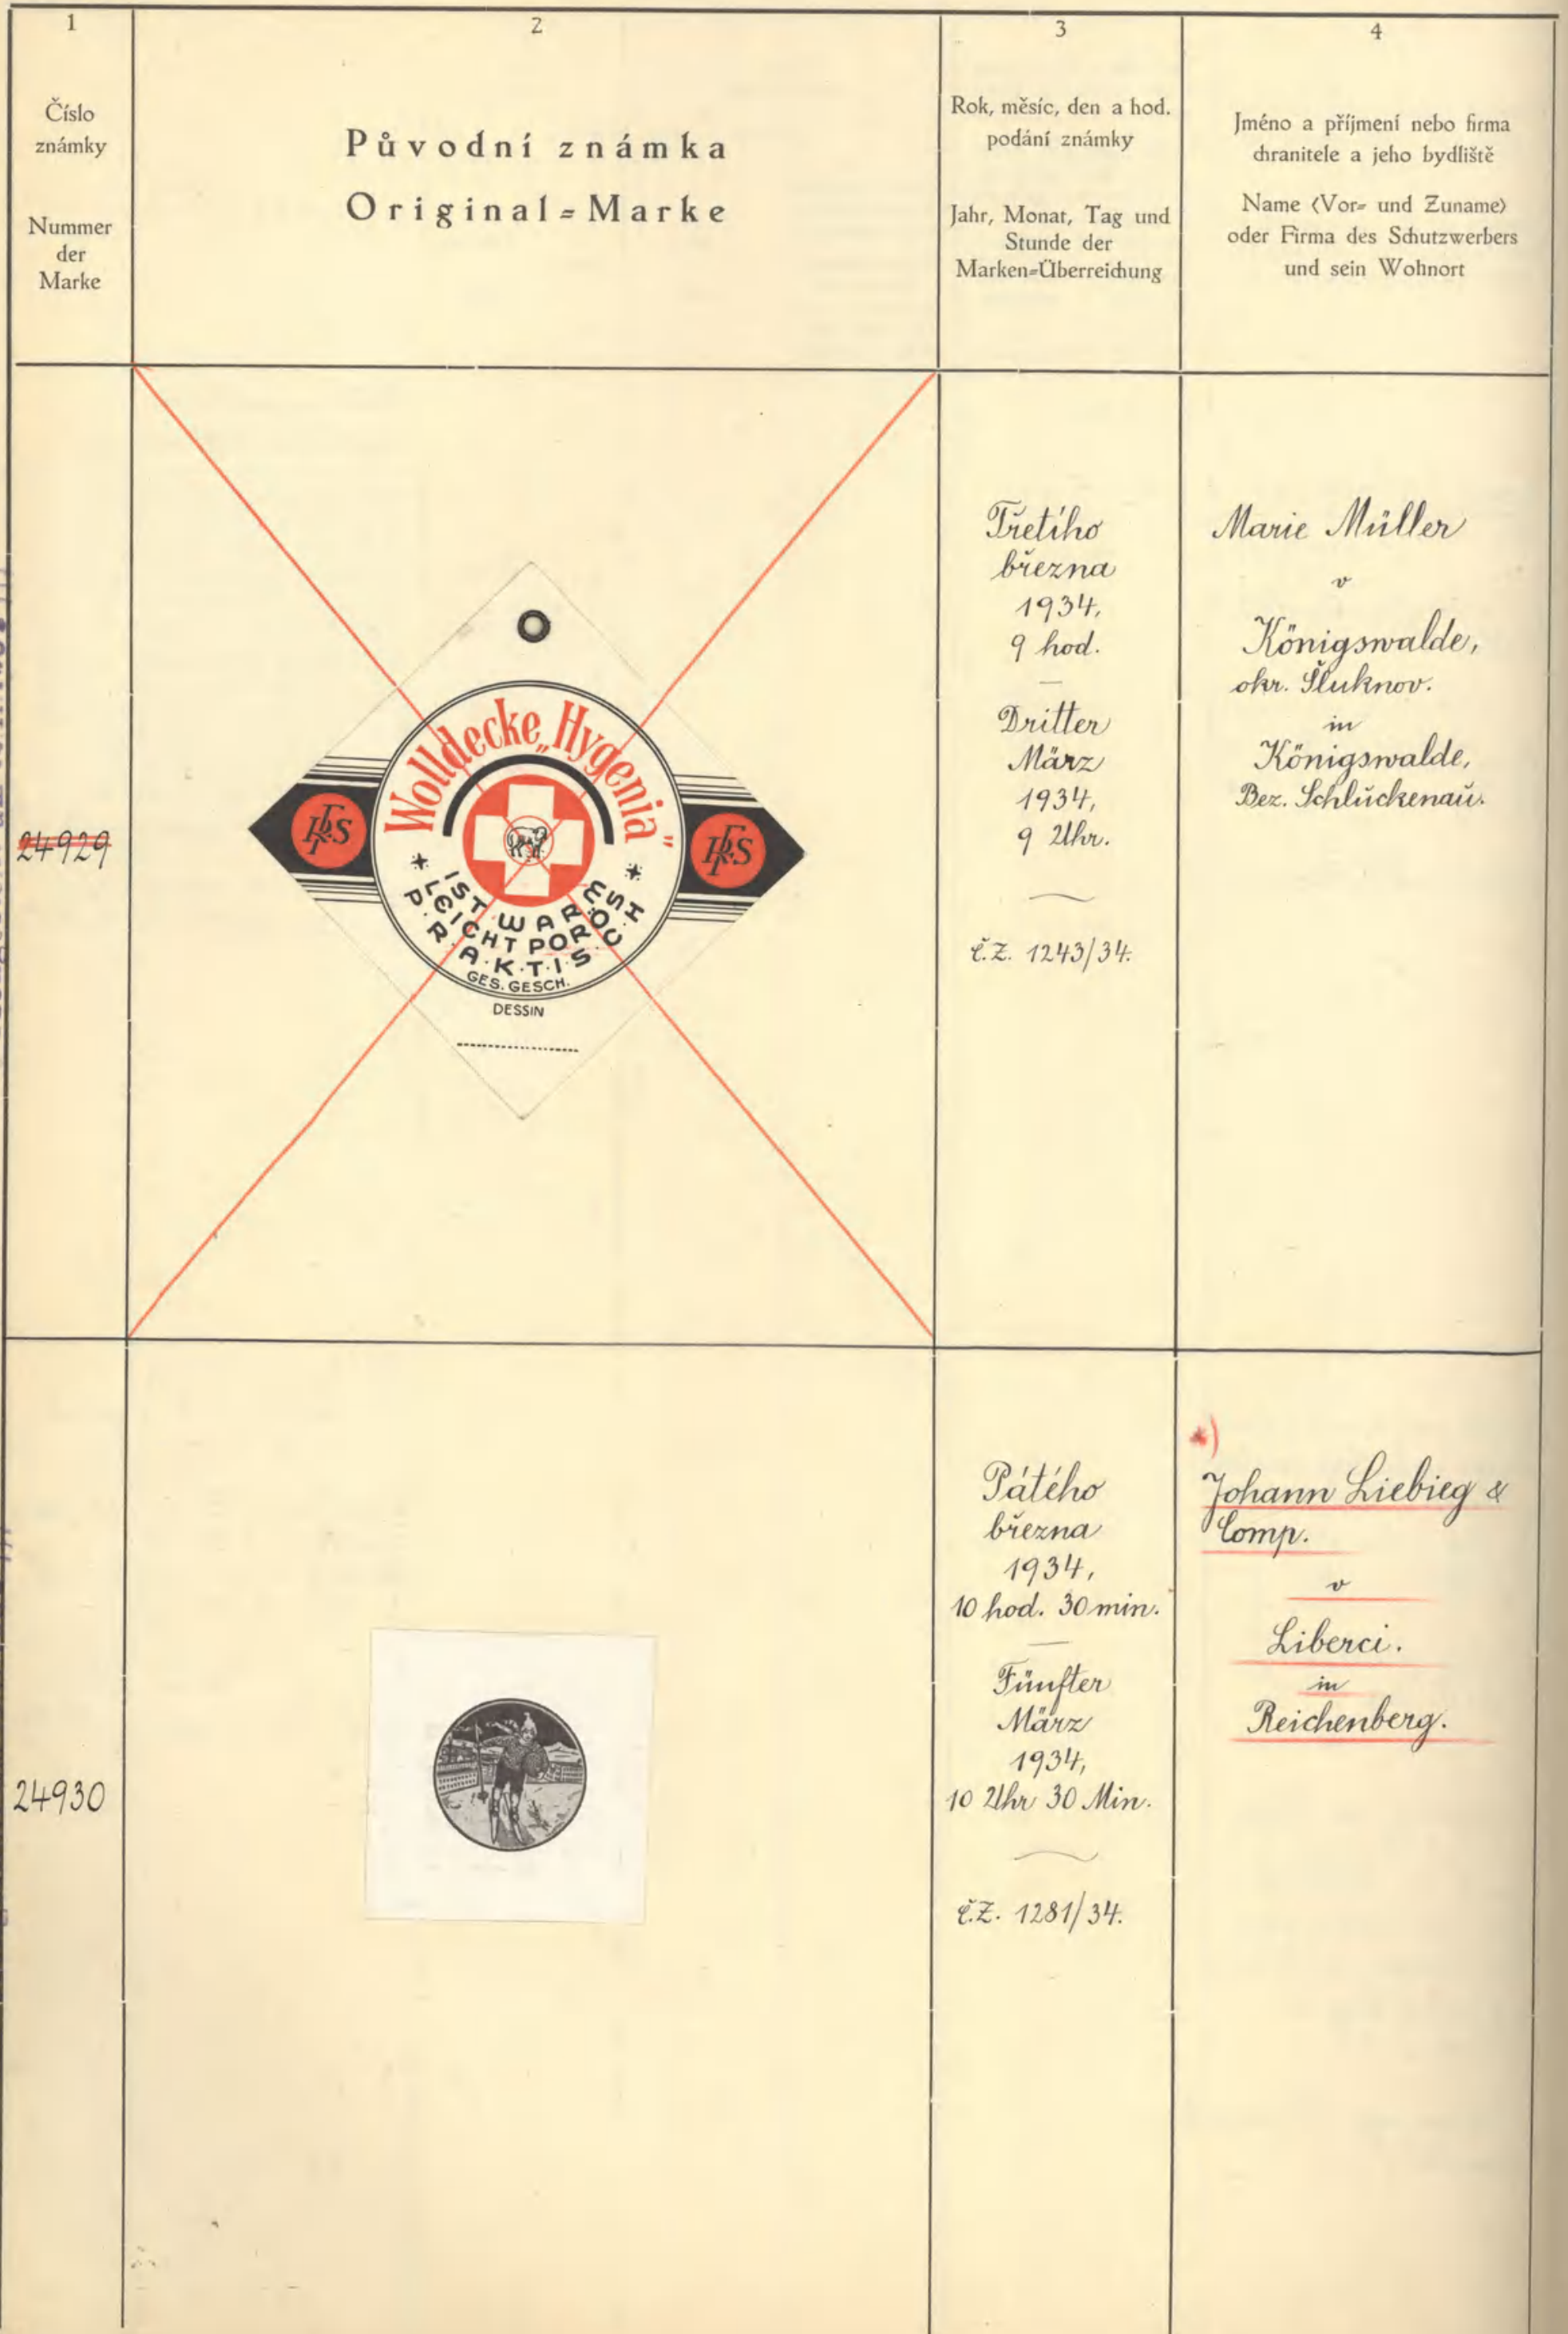 1
Číslo
známky
Nummer
der
Marke
2
Původní známka
Original=Marke
3
Rok, měsíc, den a hod.
podání známky
Jahr, Monat, Tag und
Stunde der
Marken=Überreichung
4
Jméno a příjmení nebo firma
chranitele a jeho bydliště
Name (Vor= und Zuname)
oder Firma des Schutzwerbers
und sein Wohnort
24929
Wolldecke „Hygenia"
IST WARM
LEICHT PORÖS
P.R.A.K.T.I.S.C.H
GES. GESCH.
DESSIN
Třetího
března
1934,
9 hod.
Dritter
März
1934,
9 Uhr.
č.Z. 1243/34.
Marie Müller
v
Königswalde,
okr. Šluknov.
in
Königswalde,
Bez. Schluckenau.
24930
Pátého
března
1934,
10 hod. 30 min.
Fünfter
März
1934,
10 Uhr 30 Min.
č.Z. 1281/34.
Johann Liebieg &
Comp.
v
Liberci.
in
Reichenberg.